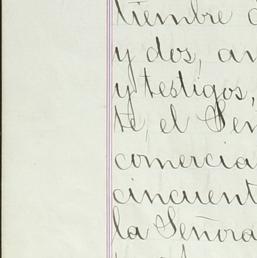 tiembre d
y dos, an
y testigos,
te, el Señ
comercia
cincuent
la Señora